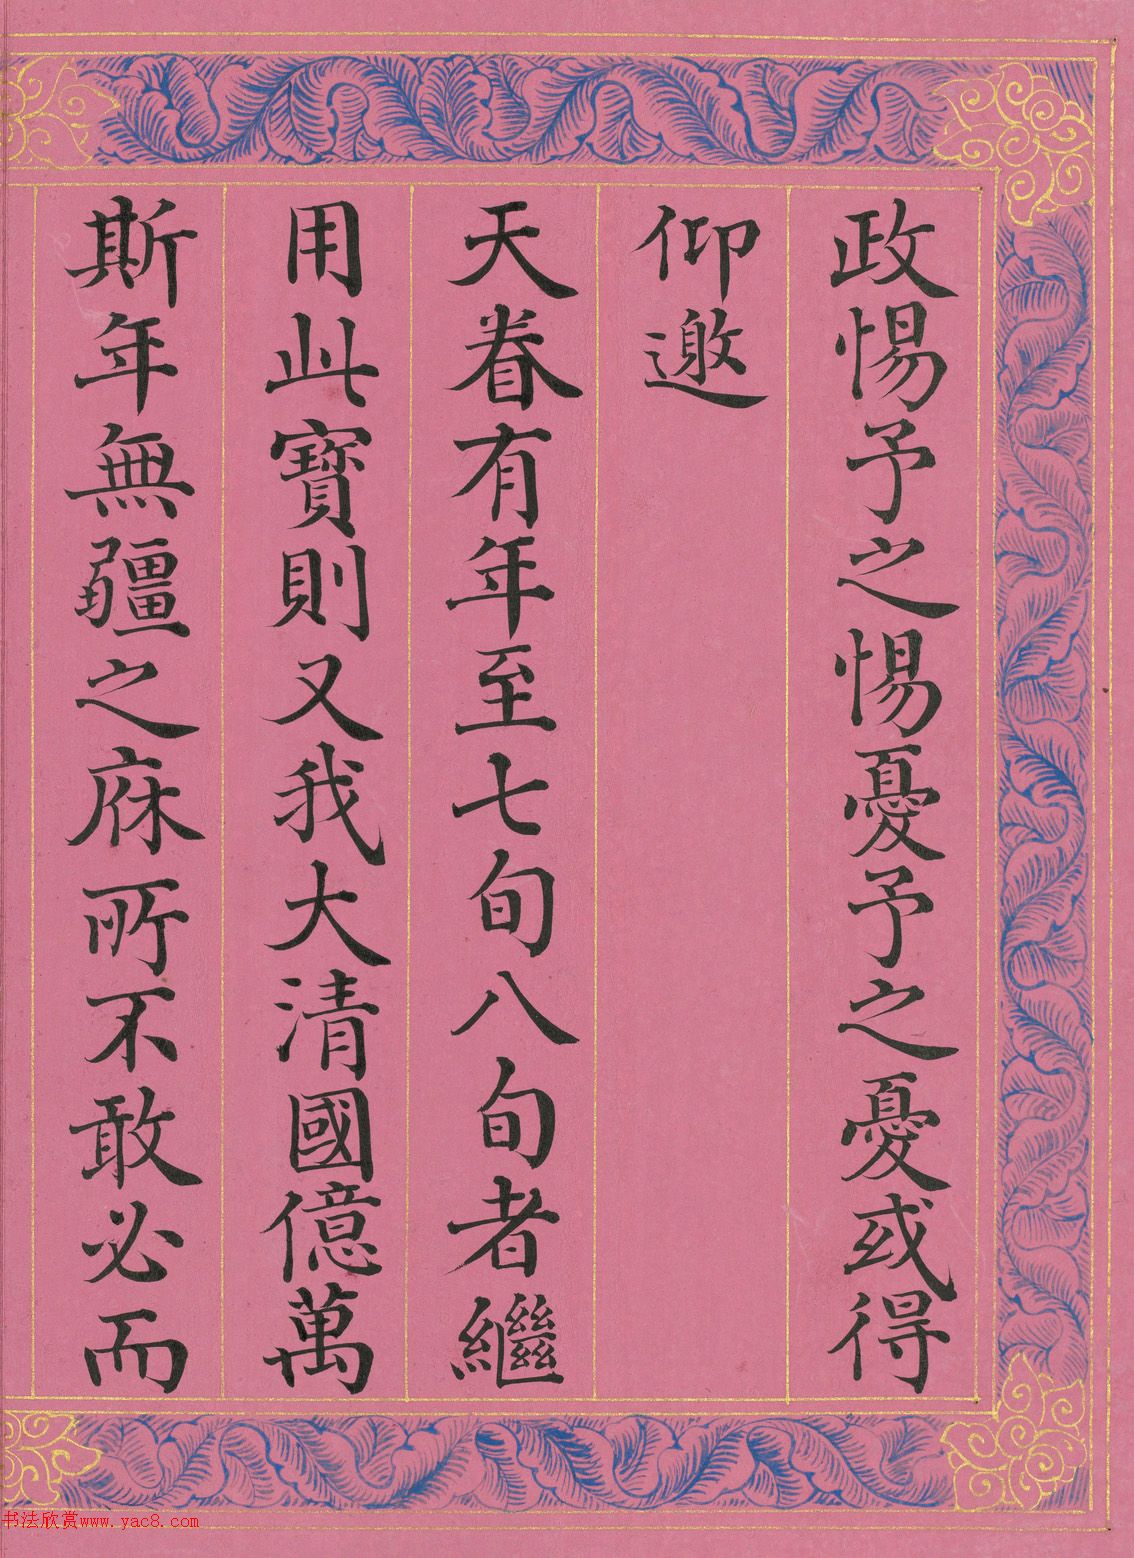 政惕予之惕憂予之憂或得
仰邀
天眷有年至七旬八旬者繼
用此寶則又我大清國億萬
斯年無疆之庥所不敢必而
书法欣赏www.yac8.com